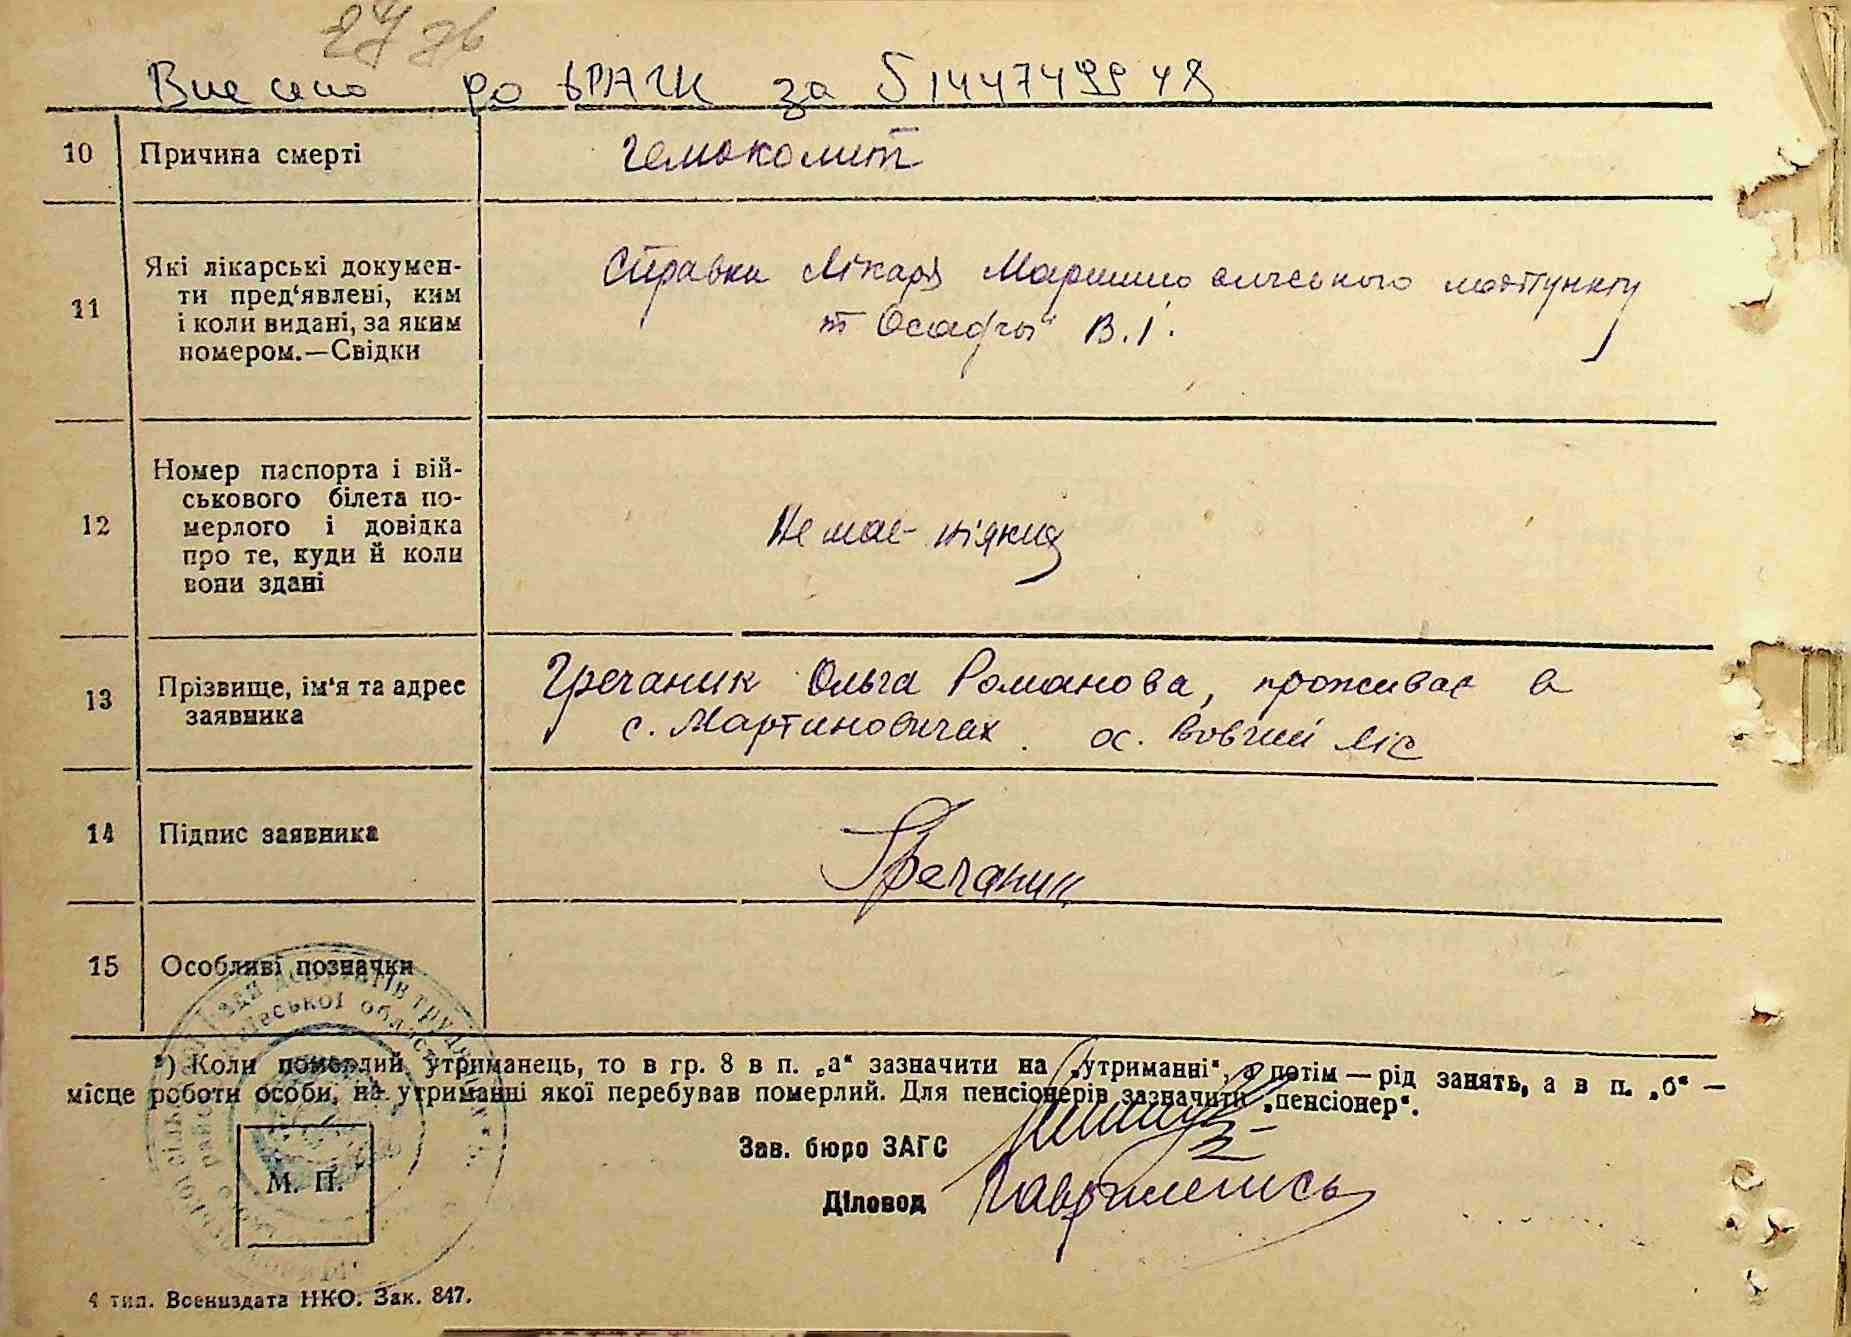 Внесено до ДРАЦС за
10 Причина смерті
гемоколит
11 Які лікарські докумен-
ти пред‘явлені, ким
і коли видані, за яким
номером.—Свідки
Справки лікаря медпункту
В.І.
12 Номер паспорта і вій-
ськового білета по-
мерлого і довідка
про те, куди й коли
вони здані
Немає ніяких
13 Прізвище, ім‘я та адрес
заявника
Гречаник Ольга Романова, проживає в
с. Мартиновичах ос. Вовчий ліс
14 Підпис заявника
Гречаник
15 Особливі позначки
*) Коли померлий утриманець, то в гр. 8 в п. „а“ зазначити на „утриманні“, а потім—рід занять, а в п. „б“ —
місце роботи особи, на утриманні якої перебував померлий. Для пенсіонерів зазначити „пенсіонер“.
Зав. бюро ЗАГС
Діловод
М. П.
4 тип. Воениздата НКО. Зак. 847.